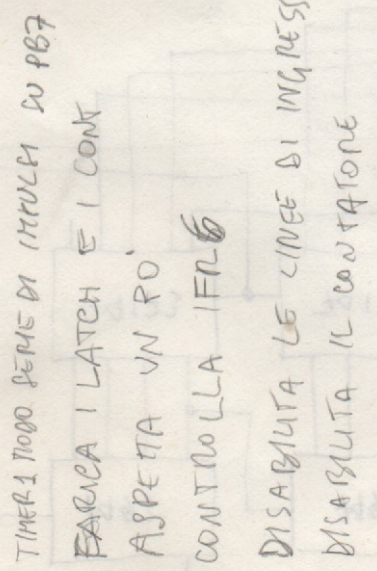 TIMER 1 MODO SERIE DI IMPULSI SU PB7
CARICA I LATCH E I CONT
ASPETTA UN PO'
CONTROLLA IFR6
DISABILITA LE LINEE DI INGRESS
DISABILITA IL CONTATORE